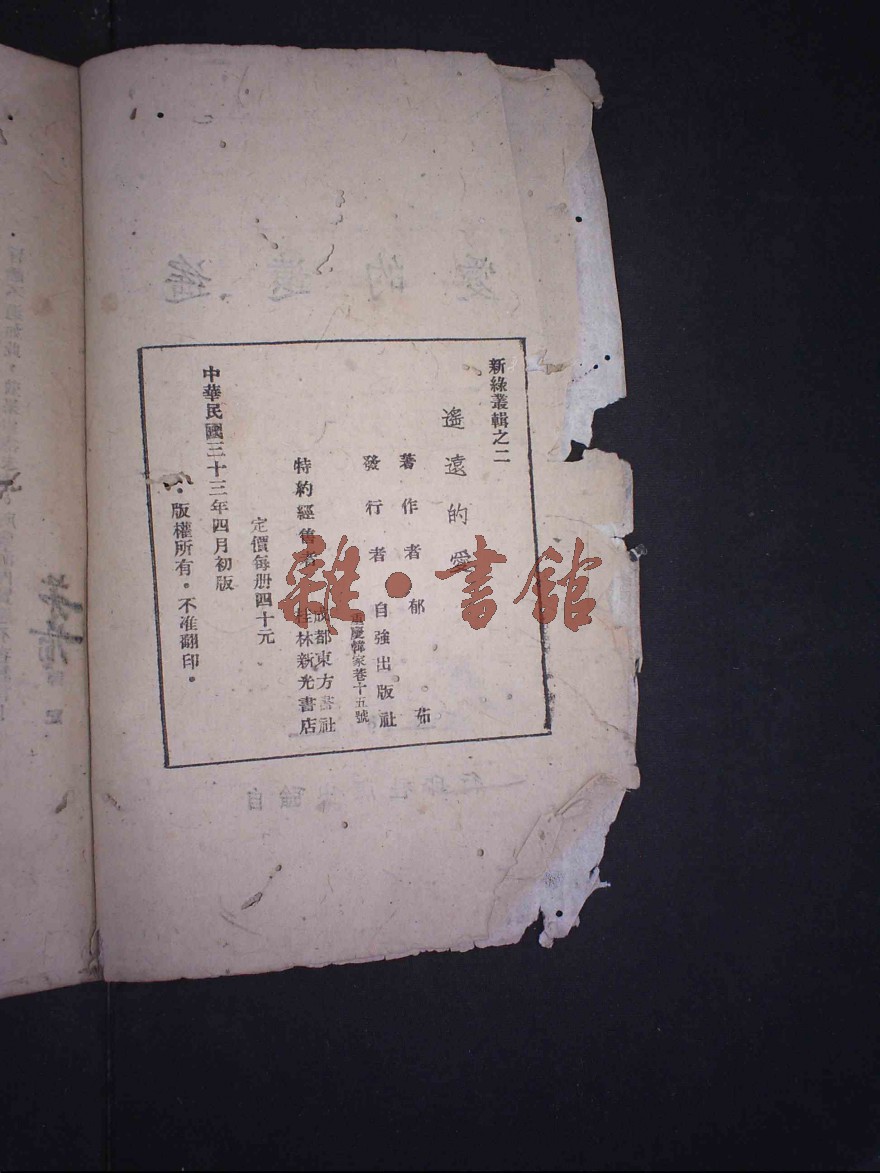 新綠叢輯之二
遙遠的愛
著作者 郁 茹
發行者 自強出版社
重慶韓家巷十五號
特約經售者 成都東方書社
桂林新光書店
定價每册四十元
中華民國三十三年四月初版
版權所有・不准翻印・
雜・書館